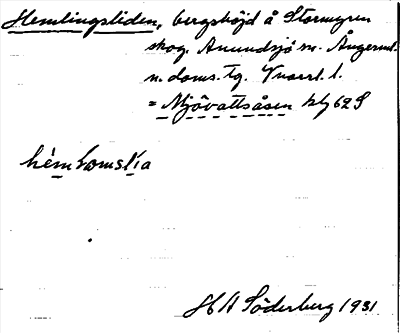 Hemlingsliden, bergshöjd å Stormyren
skog. Anundsjö sn. Ångerml.
n. doms. tg. Vnorrl. l.
= Mjövattsåsen kbg 62 S
hèm
H A Söderberg 1931